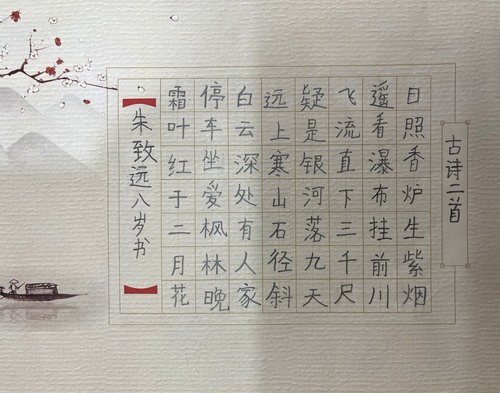 古诗二首
日照香炉生紫烟
遥看瀑布挂前川
飞流直下三千尺
疑是银河落九天
远上寒山石径斜
白云深处有人家
停车坐爱枫林晚
霜叶红于二月花
朱致远八岁书